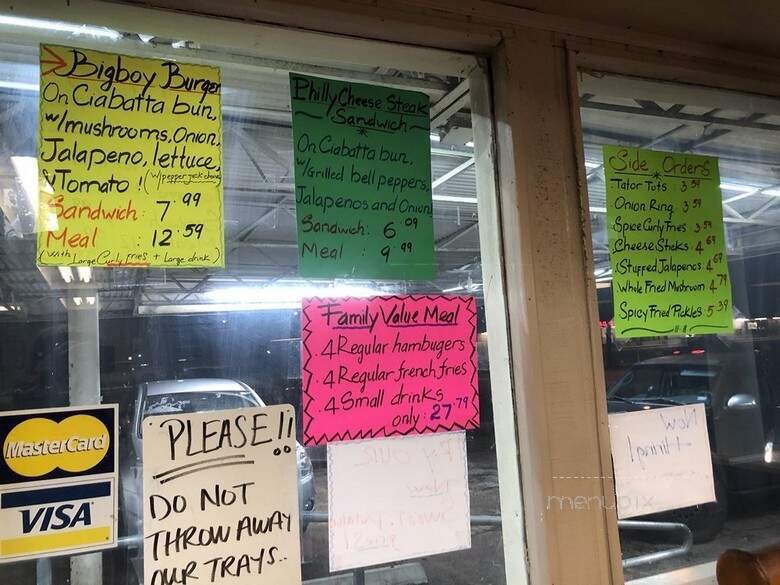 Bigboy Burger
On Ciabatta bun,
w/mushrooms, Onion,
Jalapeno, lettuce,
& Tomato! (w/pepper jack cheese)
Sandwich: 7.99
Meal : 12.59
(with Large Curly fries + Large drink)
Philly Cheese Steak
Sandwich
On Ciabatta bun,
w/Grilled bell peppers,
Jalapenos and Onion
Sandwich: 6.09
Meal : 9.99
Family Value Meal
4 Regular hambugers
4 Regular french fries
4 Small drinks
only: 27.79
Side Orders
Tator Tots 3.59
Onion Ring 3.59
Spice Curly Fries 3.59
Cheese Sticks 4.69
Stuffed Jalapenos 4.69
Whole Fried Mushroom 4.79
Spicy Fried Pickles 5.39
MasterCard
VISA
PLEASE!!
DO NOT
THROW AWAY
OUR TRAYS..
Now
Hiring!
menupix